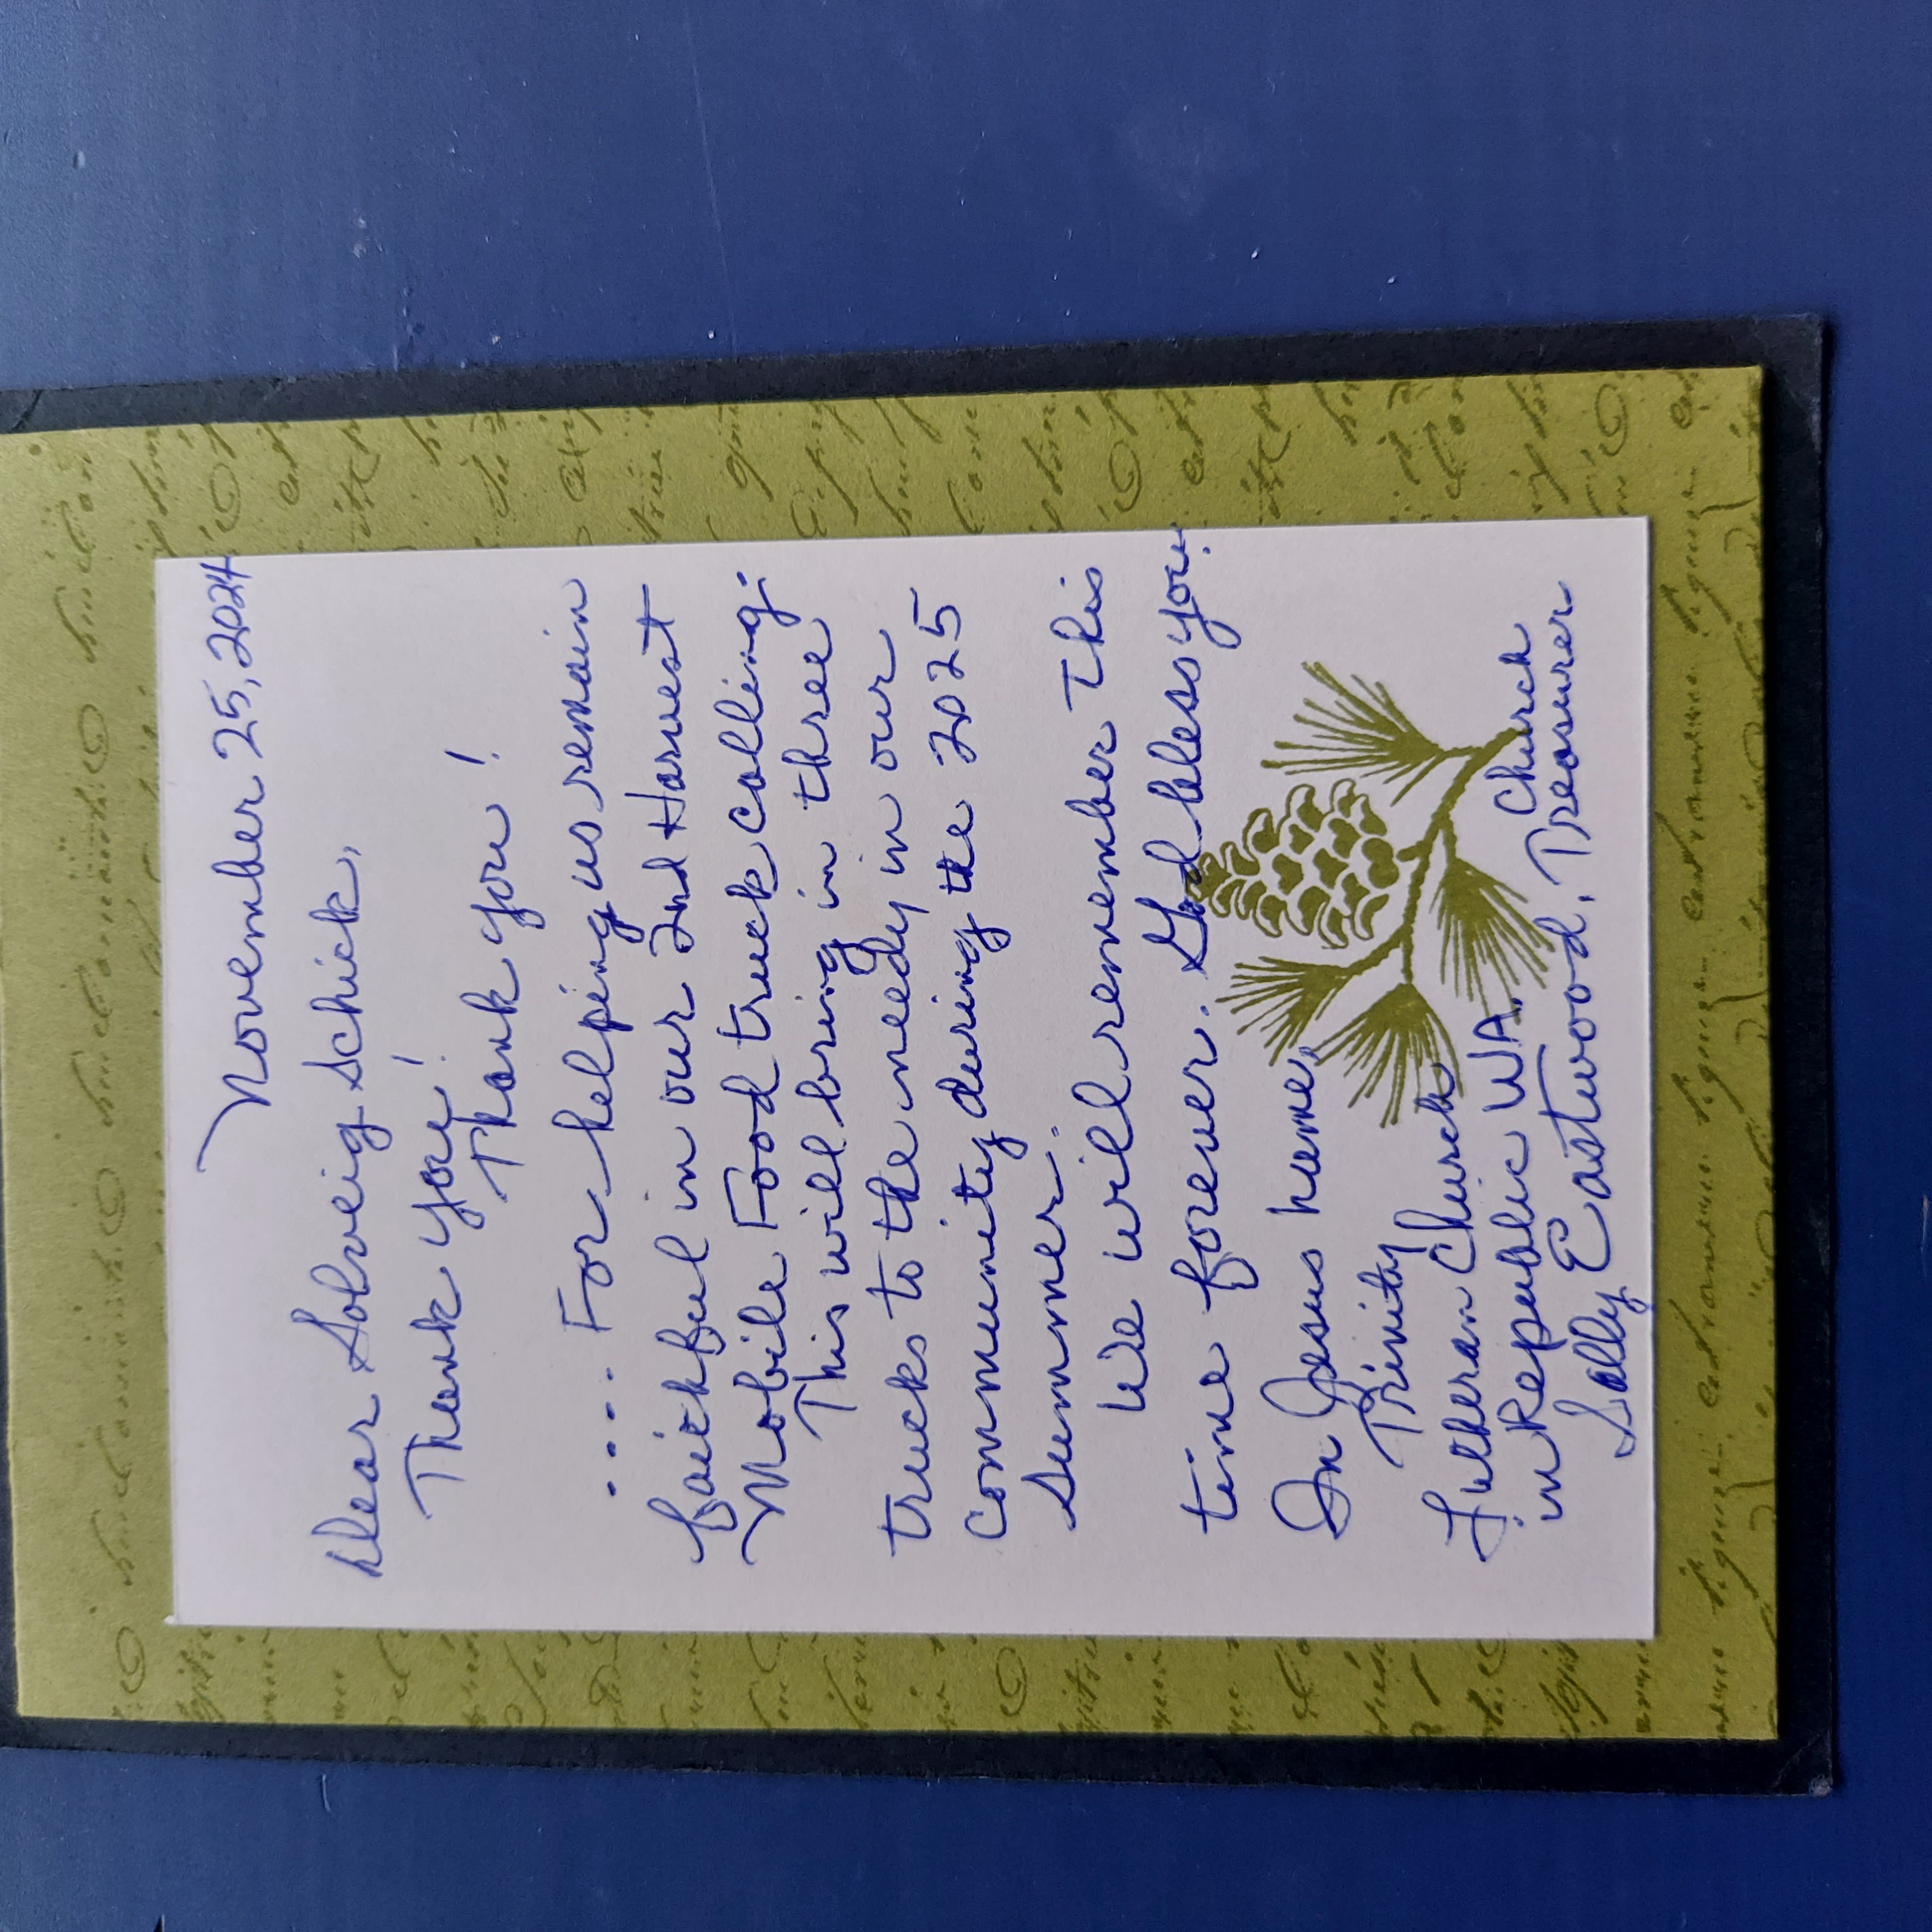 November 25, 2024
Dear Solveig Schick,
Thank you!
Thank you!
.... For helping us remain
faithful in our 2nd Harvest
Mobile Food truck calling.
This will bring in three
trucks to the needy in our
community during the 2025
Summer.
We will remember this
time forever. God bless you.
In Jesus name,
Trinity
Lutheran Church
in Republic WA.
Sally Eastwood, Church Treasurer